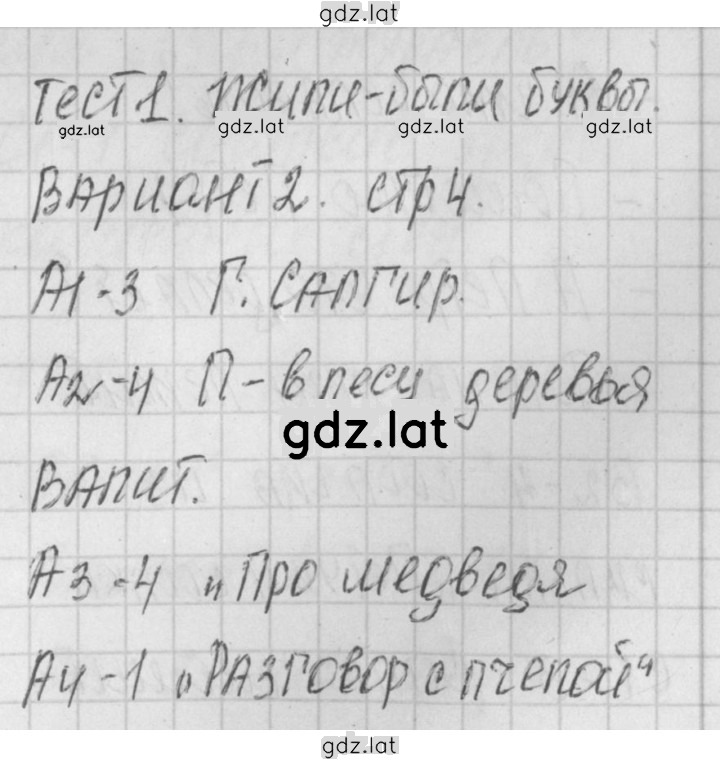 gdz.lat
Тест 1. Жили-были буквы.
gdz.lat gdz.lat gdz.lat gdz.lat
Вариант 2. стр 4.
А1-3 Г. Сапгир.
А2-4 Л - в лесу деревья
gdz.lat
валит.
А3-4 „Про медведя
А4-1 „Разговор с пчелой“
gdz.lat